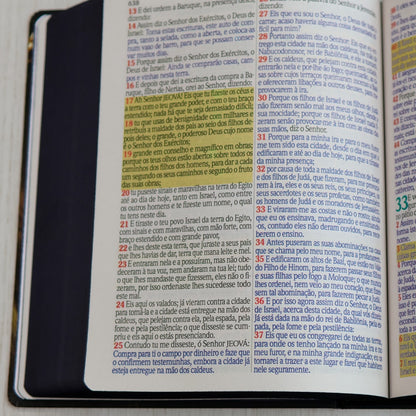 638
13 E dei ordem a Baruque, na presença deles,
dizendo:
14 Assim diz o Senhor dos Exércitos, o Deus de
Israel: Toma estas escrituras, este auto de com-
pra, tanto a selada, como a aberta, e coloca-as
num vaso de barro, para que se possam conser-
var muitos dias.
15 Porque assim diz o Senhor dos Exércitos, o
Deus de Israel: Ainda se comprarão casas, cam-
pos e vinhas nesta terra.
16 E depois que dei a escritura da compra a Ba-
ruque, filho de Nerias, orei ao Senhor, dizendo:
17 Ah Senhor JEOVÁ! Eis que tu fizeste os céus e
a terra com o teu grande poder, e com o teu braço
estendido; nada há que te seja demasiado difícil;
18 tu que usas de benignidade com milhares e
retribuis a maldade dos pais ao seio dos filhos de-
pois deles; o grande, o poderoso Deus cujo nome
é o Senhor dos Exércitos;
19 grande em conselho e magnífico em obras;
porque os teus olhos estão abertos sobre todos os
caminhos dos filhos dos homens, para dar a cada
um segundo os seus caminhos e segundo o fruto
das suas obras;
20 tu puseste sinais e maravilhas na terra do Egito
até ao dia de hoje, tanto em Israel, como entre
os outros homens e te fizeste um nome, o qual
tu tens neste dia.
21 E tiraste o teu povo Israel da terra do Egito,
com sinais e com maravilhas, com mão forte, com
braço estendido e com grande pavor.
22 e lhes deste esta terra, que juraste a seus pais
que lhes havias de dar, terra que mana leite e mel.
23 E entraram nela e a possuíram, mas não obede-
ceram à tua voz, nem andaram na tua lei; tudo o
que lhes mandaste que fizessem, eles não o fi-
zeram, por isso ordenaste lhes sucedesse todo
este mal.
24 Eis aqui os valados; já vieram contra a cidade
para tomá-la e a cidade está entregue na mão dos
caldeus, que pelejam contra ela, pela espada, pela
fome e pela pestilência; o que disseste se cum-
priu e eis aqui o estás presenciando.
25 Contudo tu me disseste, ó Senhor JEOVÁ:
Compra para ti o campo por dinheiro e faze que
o confirmem testemunhas, embora a cidade já
esteja entregue na mão dos caldeus.
dizendo:
27 Eis que eu sou o Senhor, o Deus de toda a
carne; acaso haveria alguma coisa demasiado di-
fícil para mim?
28 Portanto assim diz o Senhor: Eis que eu entrego
esta cidade na mão dos caldeus, e na mão de
Nabucodonosor, rei de Babilônia, e ele a tomará.
29 E os caldeus, que pelejam contra esta cidade,
entrarão nela e por-lhe-ão fogo; queimarão as ca-
sas sobre cujos terraços queimaram incenso a Baal
e ofereceram libações a outros deuses, para me
provocarem à ira.
30 Porque os filhos de Israel e os filhos de Judá
não fizeram senão mal aos meus olhos, desde a
sua mocidade; porque os filhos de Israel não fi-
zeram senão provocar-me à ira com as obras de
suas mãos, diz o Senhor.
31 Porque para a minha ira e para o meu furor
me tem sido esta cidade, desde o dia em que a
edificaram e até ao dia de hoje, para que a tirasse
da minha presença;
32 por causa de toda a maldade dos filhos de Israel
e dos filhos de Judá, que fizeram, para me provoca-
rem à ira, eles e os seus reis, os seus príncipes, os
seus sacerdotes e os seus profetas, como também
os homens de Judá e os moradores de Jerusalém.
33 E viraram-me as costas e não o rosto; ainda
que eu os ensinava, madrugando e ensinando-
os, contudo eles não deram ouvidos, para rece-
berem o ensino.
34 Antes puseram as suas abominações na casa
que se chama pelo meu nome, para a profanarem.
35 E edificaram os altos de Baal, que estão no vale
do Filho de Hinom, para fazerem passar seus filhos
e suas filhas pelo fogo a Moloque; o que nunca
lhes ordenei, nem veio ao meu coração, que fizes-
sem tal abominação, para fazerem pecar a Judá.
36 E por isso agora assim diz o Senhor, o Deus
de Israel, acerca desta cidade, da qual vós dizeis:
Já está dada na mão do rei de Babilônia, pela es-
pada, pela fome e pela pestilência:
37 Eis que eu os congregarei de todas as terras,
para onde os tenho lançado na minha ira e no
meu furor, e na minha grande indignação; e os
tornarei a trazer a este lugar e farei que habitem
nele seguramente.
33